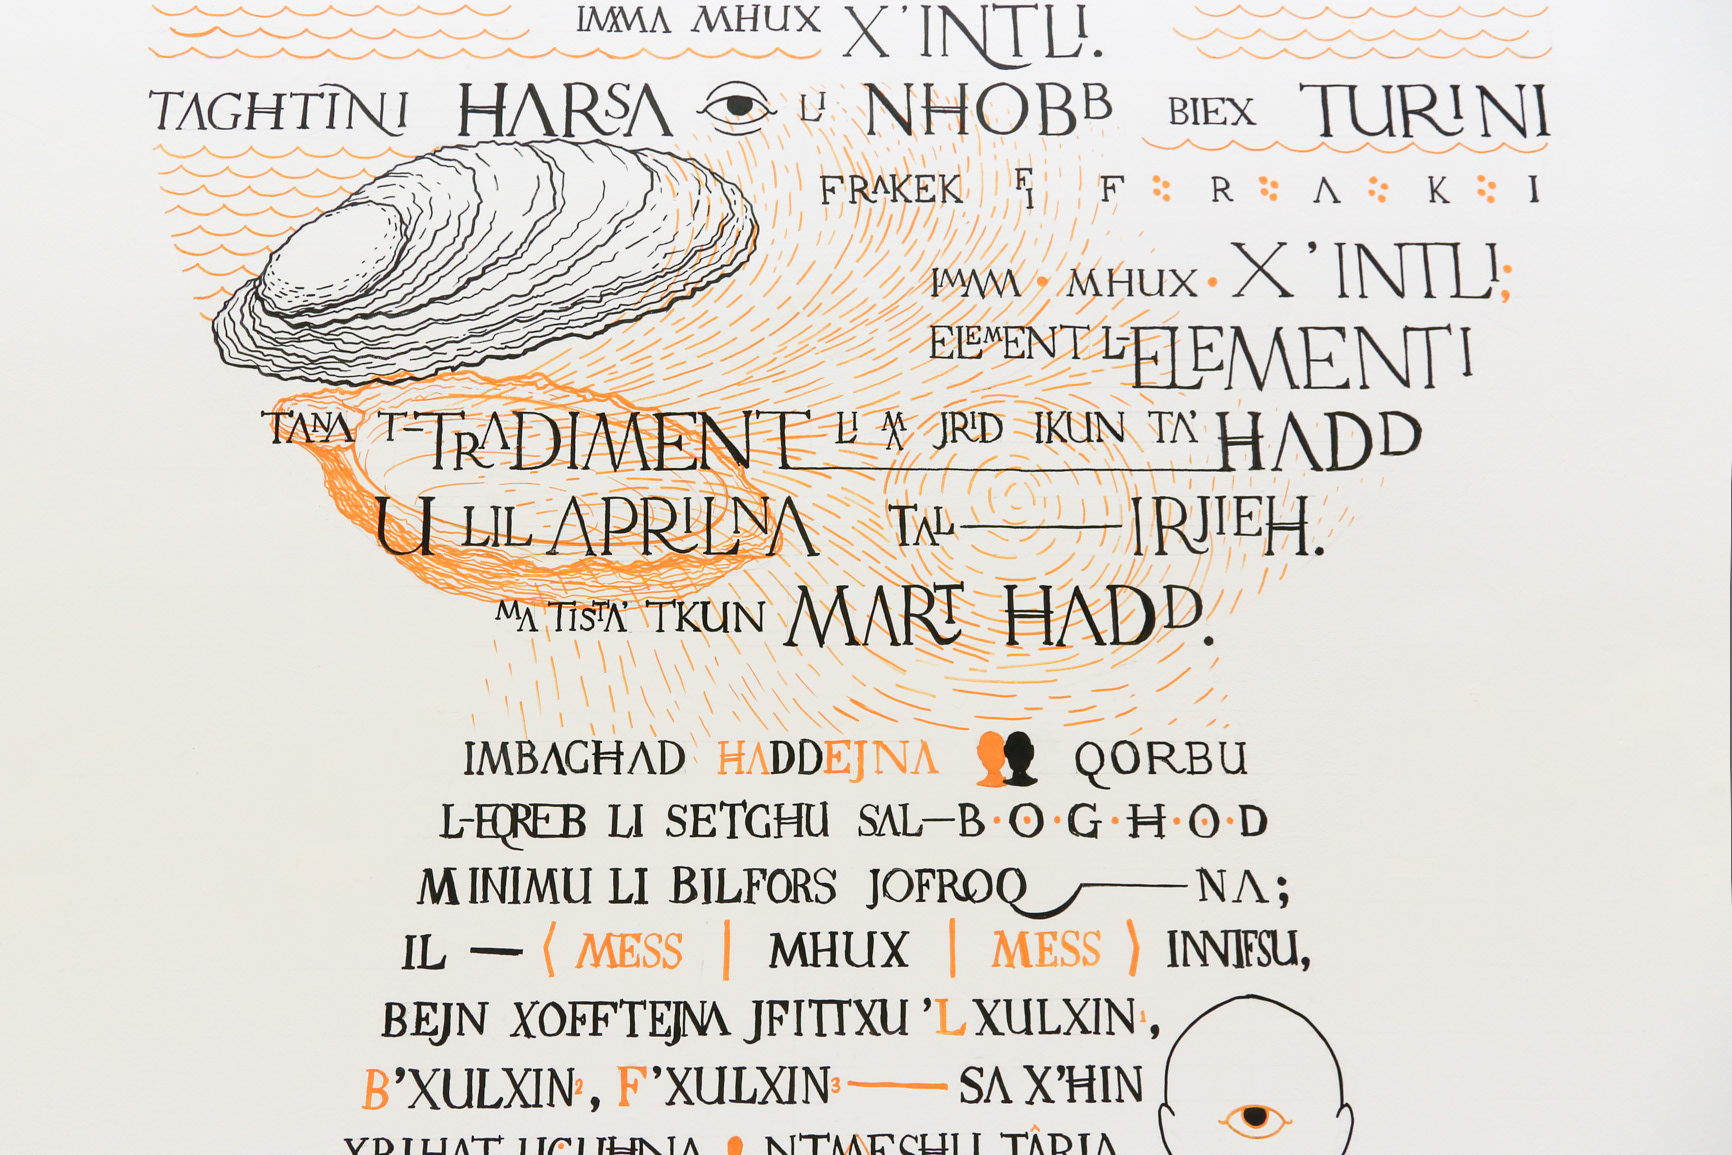 IMMA MHUX X'INTLI.
TAGĦTINI ĦARSA LI NĦOBB BIEX TURINI
FRAKEK FI F R A K I
IMMA · MHUX · X'INTLI;
ELEMENT L-ELEMENTI
TANA T-TRADIMENT LI MA JRID IKUN TA' ĦADD
U LIL APRILNA TAL — IRJIEĦ.
MA TISTA' TKUN MART ĦADD.
IMBAGĦAD ĦADDEJNA QORBU
L-EQREB LI SETGĦU SAL—B·O·G·Ħ·O·D
MINIMU LI BILFORS JOFROQ — NA;
IL — ⟨ MESS | MHUX | MESS ⟩ INNIFSU,
BEJN XOFFTEJNA JFITTXU 'L XULXIN¹,
B'XULXIN², F'XULXIN³ — SA X'ĦIN